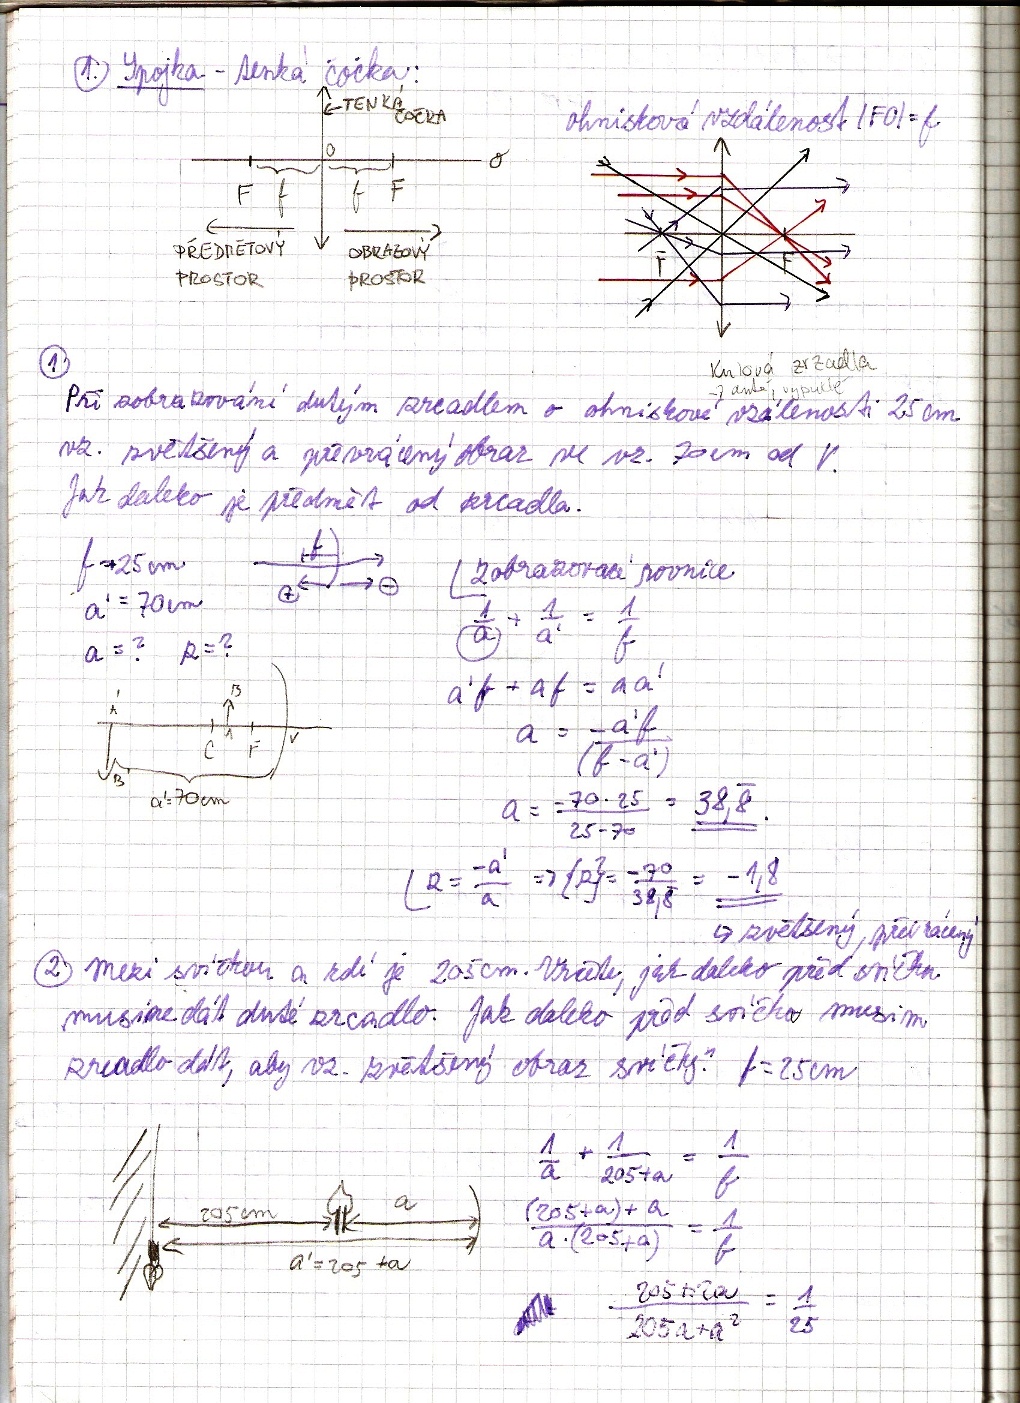 1. Spojka - tenká čočka:
← TENKÁ
ČOČKA
O
o
F f f F
PŘEDMĚTOVÝ
PROSTOR
OBRAZOVÝ
PROSTOR
ohnisková vzdálenost |FO| = f
F F
Kulová zrzadla
→ dutá, vypuklé
1
Při zobrazování dutým zrcadlem o ohniskové vzdálenosti 25cm
vz. zvětšený a převrácený obraz ve vz. 70cm od V.
Jak daleko je předmět od zrcadla.
f = +25cm
a' = 70cm
a = ? Z = ?
f
+ −
A' B
C A F V
B'
a'=70cm
Zobrazovací rovnice
1/a + 1/a' = 1/f
a'f + af = aa'
a = -a'f/(f-a')
a = -70·25/25-70 = 38,8̅.
Z = -a'/a => {Z} = -70/38,8̅ = -1,8
↳ zvětšený, převrácený
2. Mezi svíčkou a zdí je 205cm. Určete, jak daleko před svíčku
musíme dát duté zrcadlo. Jak daleko před svíčku musím
zrcadlo dát, aby vz. zvětšený obraz svíčky? f=25cm
205cm a
a'=205+a
1/a + 1/205+a = 1/f
(205+a)+a/a·(205+a) = 1/f
205+2a/205a+a² = 1/25